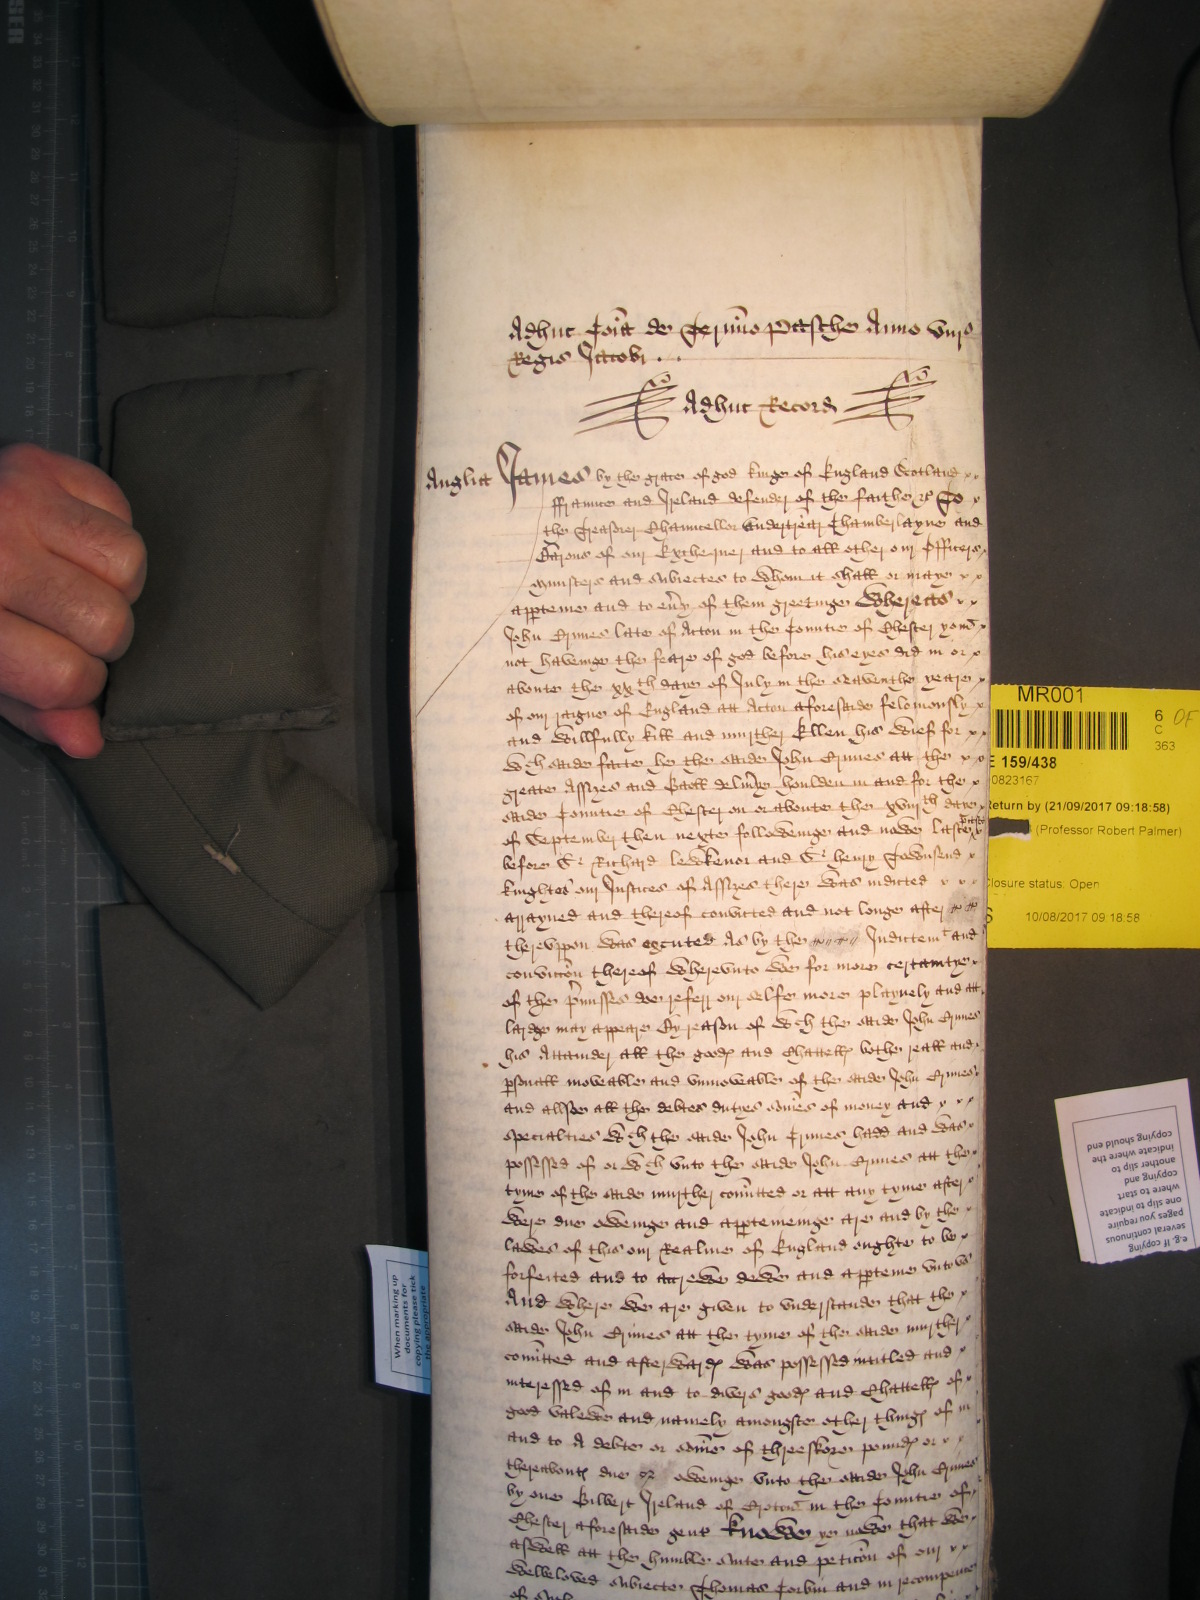 Adhuc Co{m}i{a} de Termino Pasche Anno vi{cesimo}
Regis Jacobi . . .
Adhuc Record
Anglia James by the grace of god kinge of England Scotland
ffraunce and Ireland defender of the faithe &c To
the Treasorer Chauncellor Undertrear Chamberlayne and
Barons of our Exchequer and to all other our Officers
mynisters and subiectes to whom it shall or maye
apperteine and to eny of them greetinge Whereas
John Crymes late of Acton in the Countie of Chester yom
not havinge the feare of god before his eyes did in or
aboute the xxth daye of July in the yeare
of our raigne of England att Acton aforesaide feloniously
and willfully kill and murther Ellen his wief for
wch saide facte he the saide John Crymes att the
greate Assizes and Gaole delivy houlden in and for the
saide Countie of Chester on or aboute the xviiith daye
of September then nexte followeinge and nowe laste past
before Sr Richard lewkenor and Sr henry Townsend
knightes our Justices of Assizes there was indicted
arrayned and thereof convicted and not longe after
thereuppon was excuted As by the Indictemt and
convicton thereof Wherevnto we for more certaintye
of the pmisses doe referr our selfe more playnely and att
large may appeare By reason of wch the saide John Crymes
his Attainder all the goodes and Chattells bothe reall and
psonall moveable and vnmoveable of the saide John Crymes
and allsoe all the debtes dutyes somes of money and
specialties wch the saide John Crymes hadd and was
possessed of or wch vnto the saide John Crymes att the
tyme of the saide murther comitted or att any tyme after
were due oweinge and apperteineinge are and by the
lawes of this our Realme of England oughte to be
forfeited and to accrewe dewe and apperteine vnto vs
And where we are given to vnderstande that the
saide John Crymes att the tyme of the saide murther
comitted and afterwardes was possessed intitled and
interessed of in and to divers goodes and Chattells of
good valewe and namely amongste other thinges of in
and to A debte or some of threeskore poundes or
thereaboutes due or oweinge vnto the saide John Crymes
by one Gilbert Ireland of Croton in the Countie of
Chester aforesaide gent Knowe ye nowe that we
aswell att the humble suite and peticon of our
welbeloved subiecte Thomas Corbin and in recompence
of
MR001
6 OF
C
363
E 159/438
0823167
Return by (21/09/2017 09:18:58)
(Professor Robert Palmer)
Closure status: Open
10/08/2017 09:18:58
e.g. If copying
several continuous
pages you require
one slip to indicate
where to start
copying and
another slip to
indicate where the
copying should end
When marking up
documents for
copying please tick
the appropriate